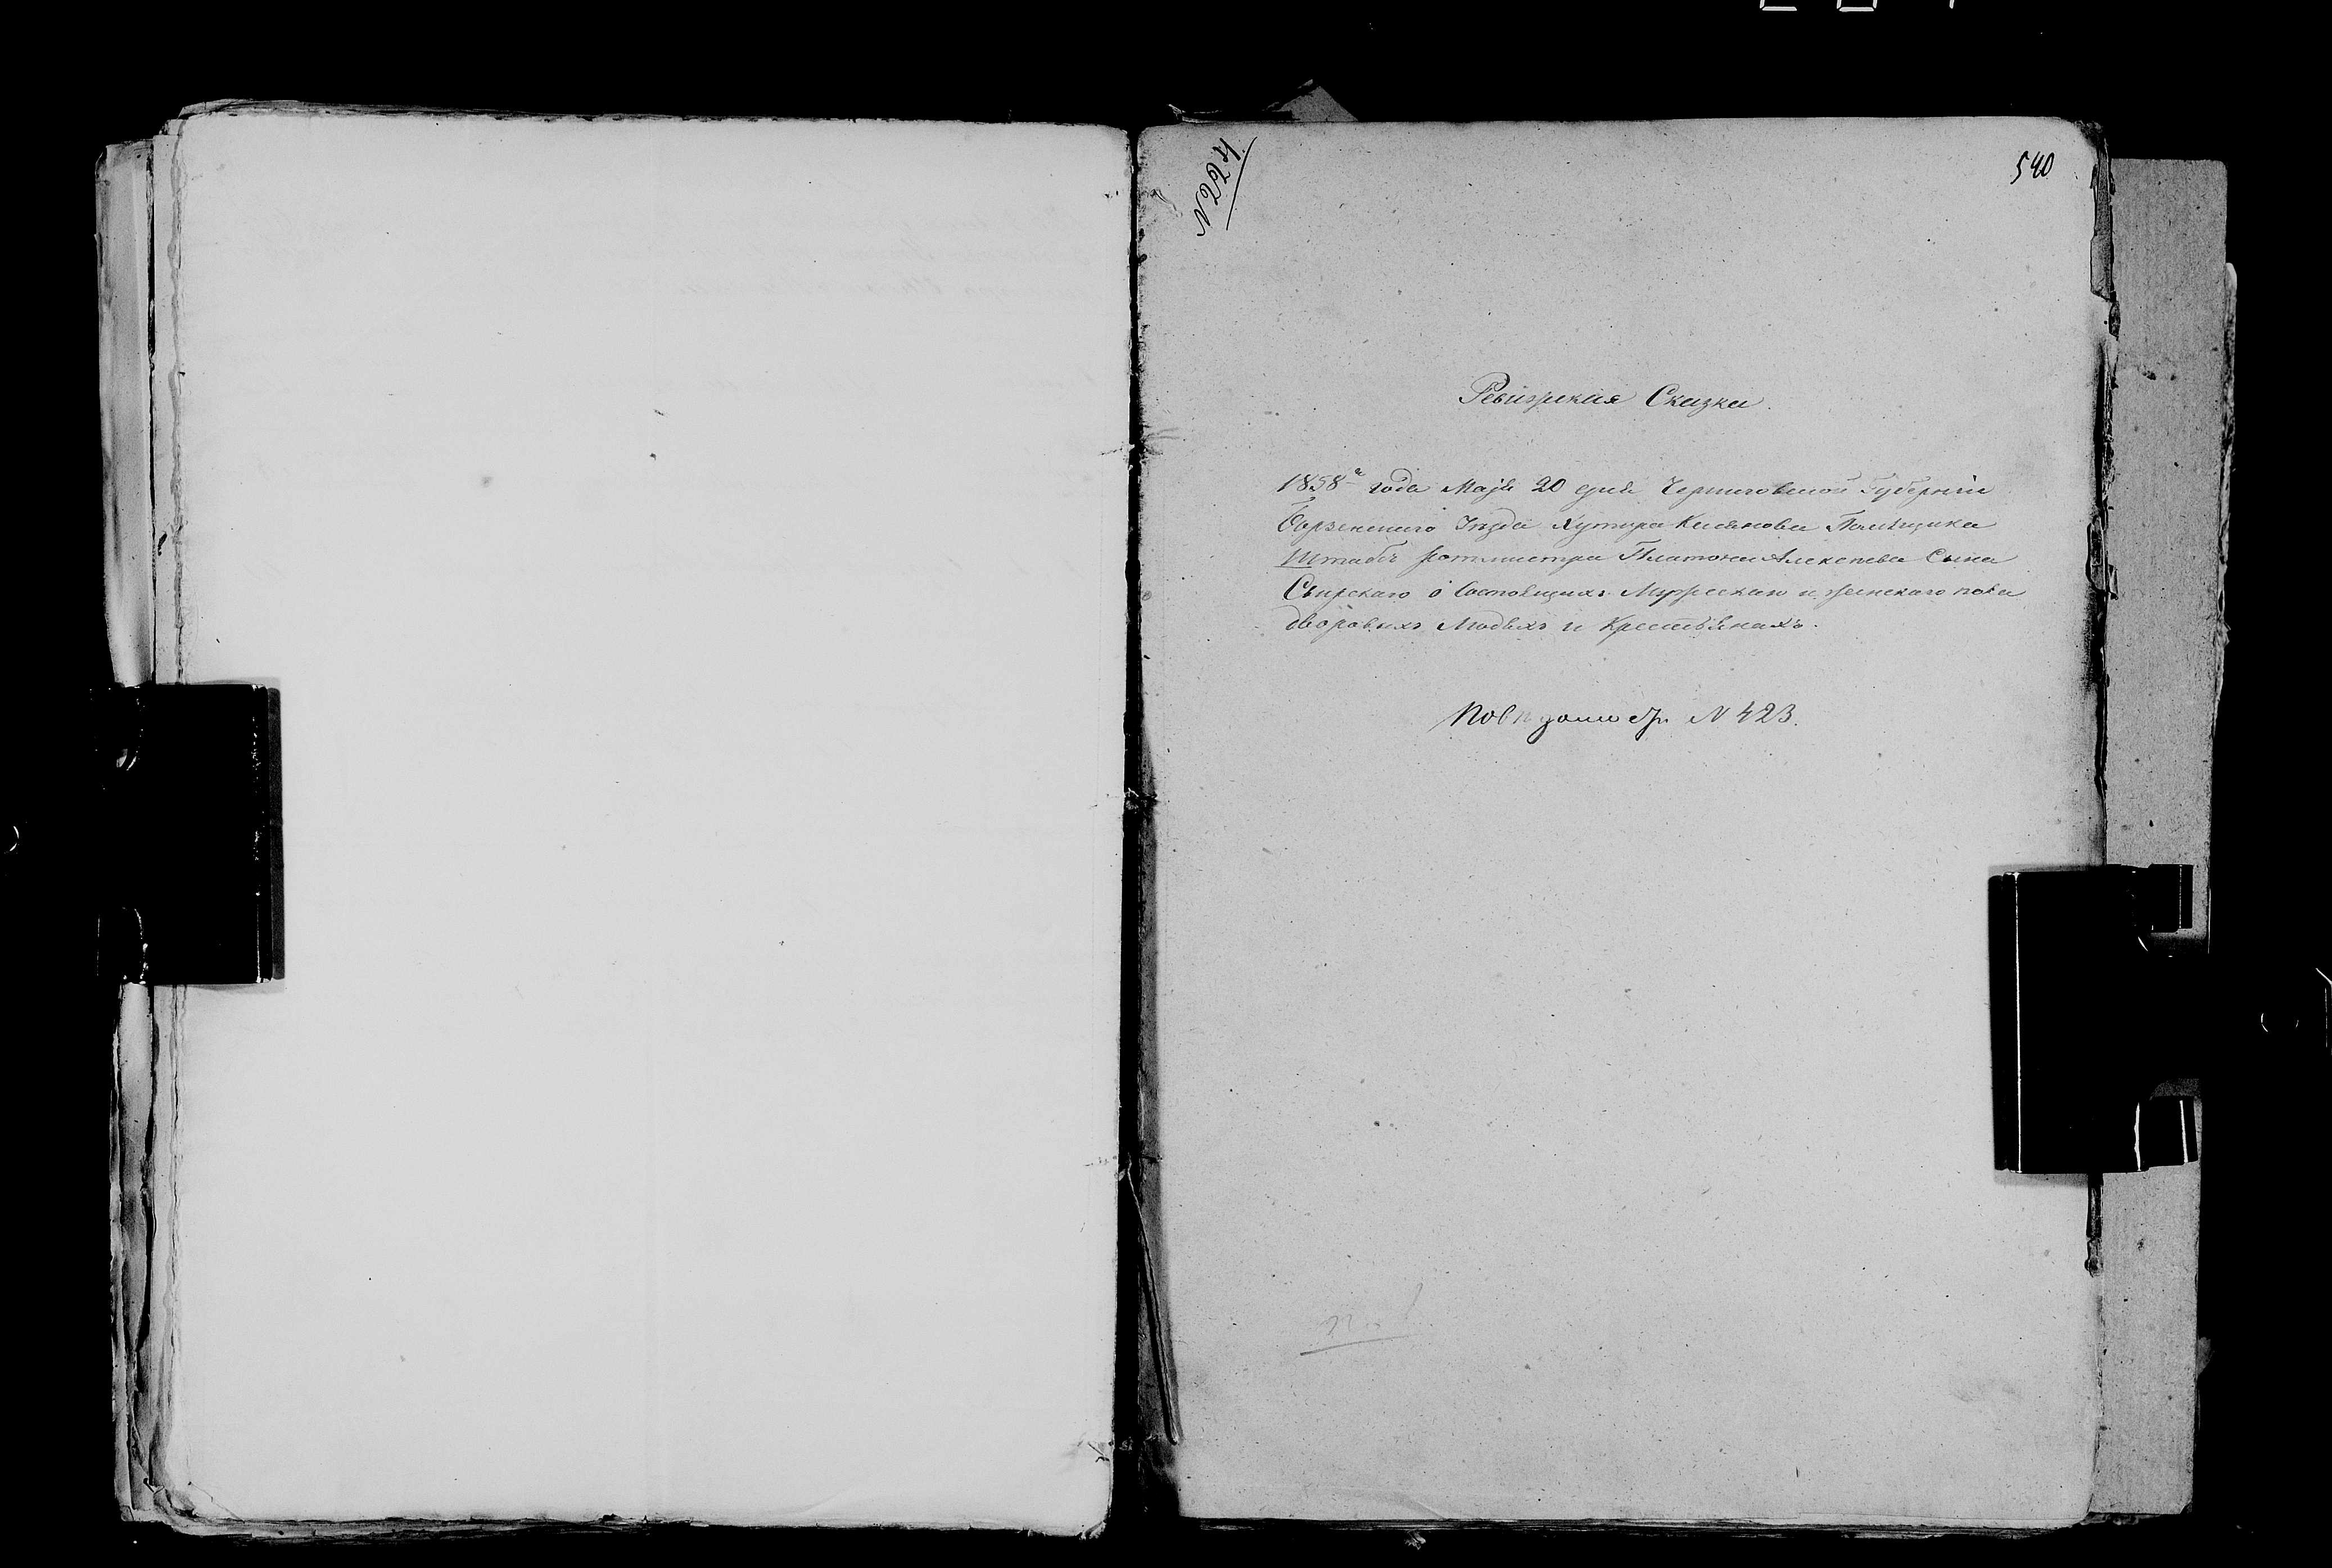 N 224.
540
Ревизская Сказка.
1858го года Маія 20 дня Черниговской Губерніи
Борзенского Уѣзда Хутора Касянова Помѣщика
Штабъ Ротмистра Платона Алексѣева Сына
Свирскаго о Состоящихъ Мужескаго и женскаго пола
дворовыхъ Людяхъ и Крестьянахъ.
N 423.